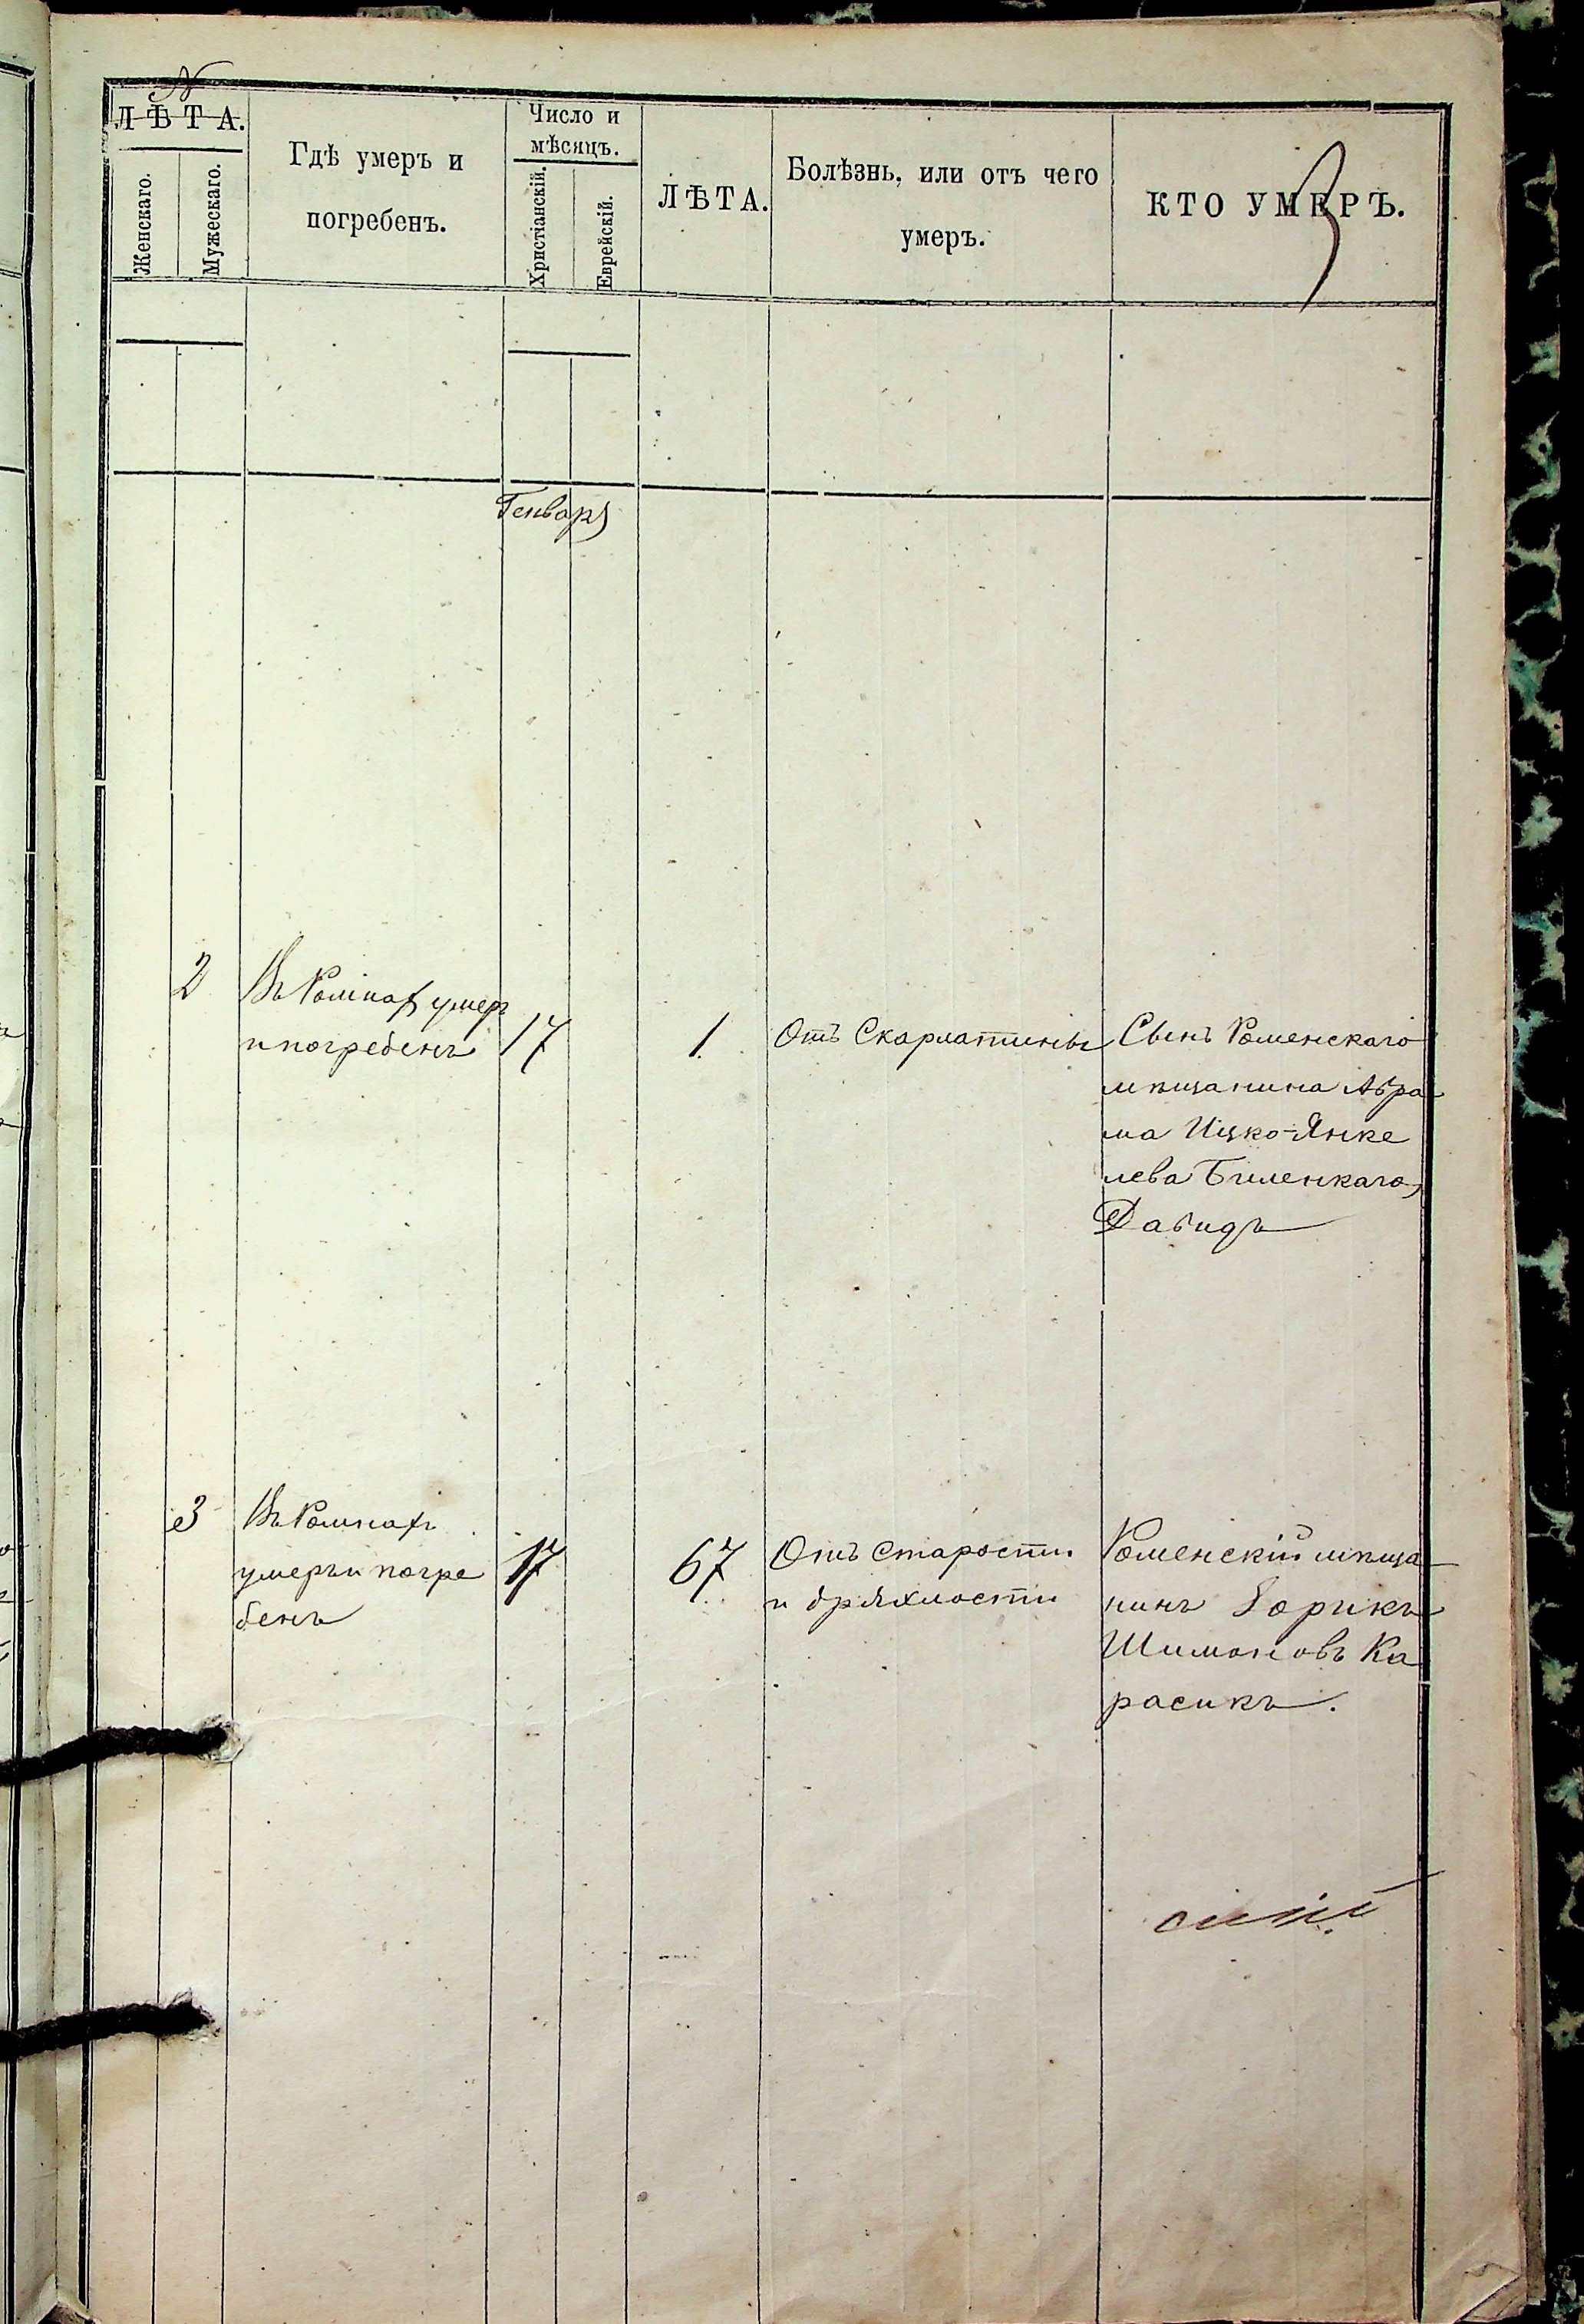 №
ЛѢТА.
Женскаго.
Мужескаго.
Гдѣ умеръ и
погребенъ.
Число и
мѣсяцъ.
Христіанскій.
Еврейскій.
ЛѢТА.
Болѣзнь, или отъ чего
умеръ.
КТО УМЕРЪ.
3
Генваря
2
Въ Ромнах умеръ
и погребенъ
17
1
Отъ Скарлатины
Сынъ Роменскаго
мѣщанина Авра
ма Ицко-Янке
лева Биленкаго,
Давидъ
3
Въ Ромнахъ
умеръ и погре
бенъ
17
67
Отъ Старости
и дряхлости
Роменскій мѣща
нинъ Зорикъ
Шимоновъ Ка
расикъ.